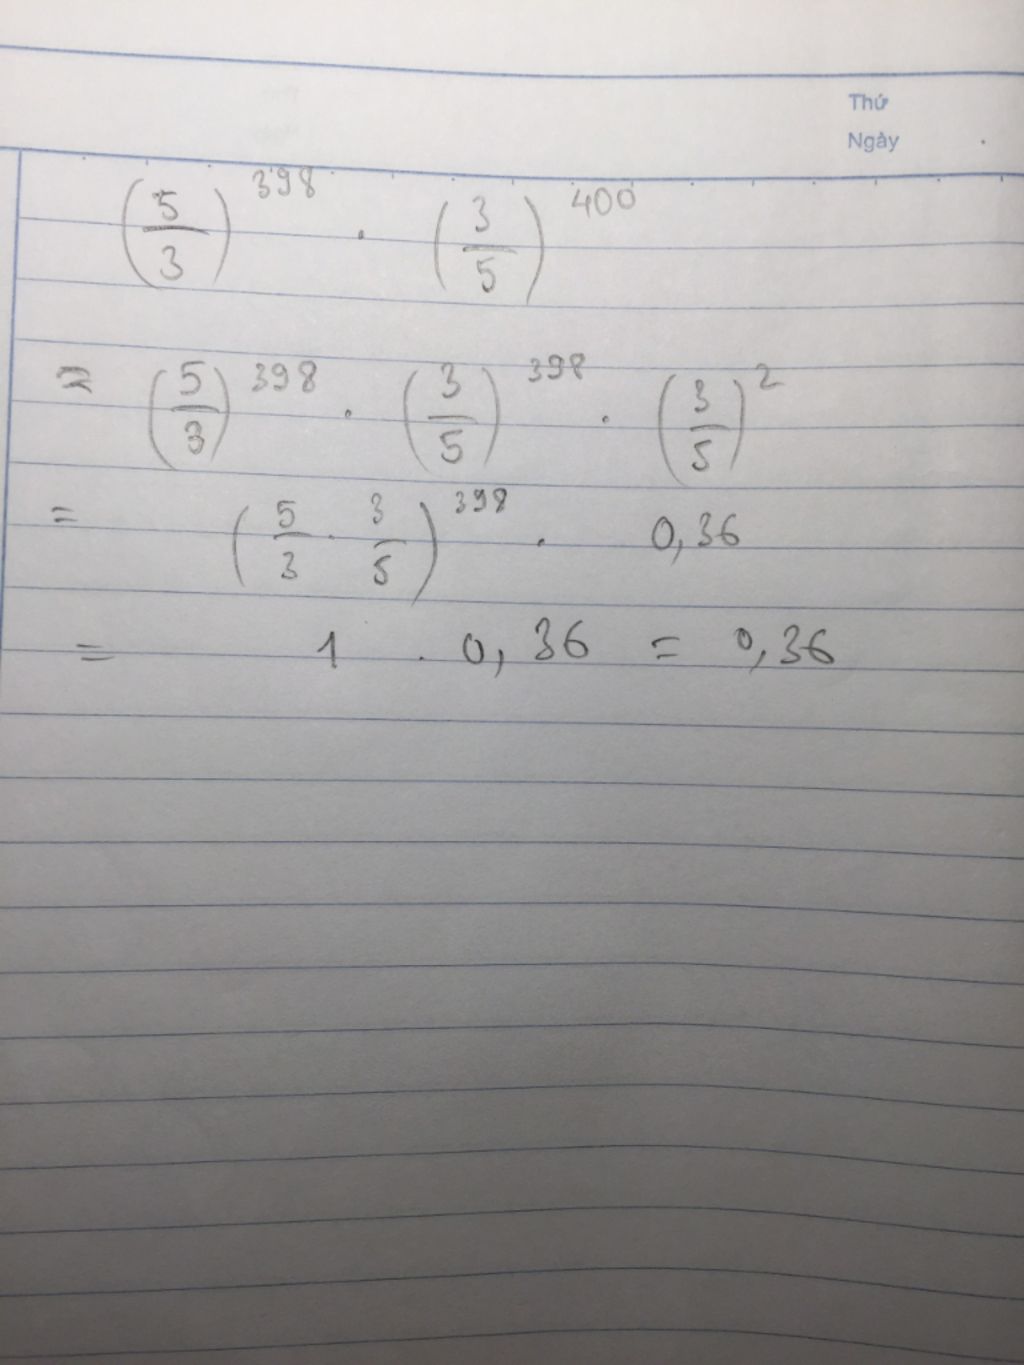 Thứ
Ngày
(5/3)^398 . (3/5)^400
= (5/3)^398 . (3/5)^398 . (3/5)^2
= (5/3 . 3/5)^398 . 0,36
= 1 . 0,36 = 0,36